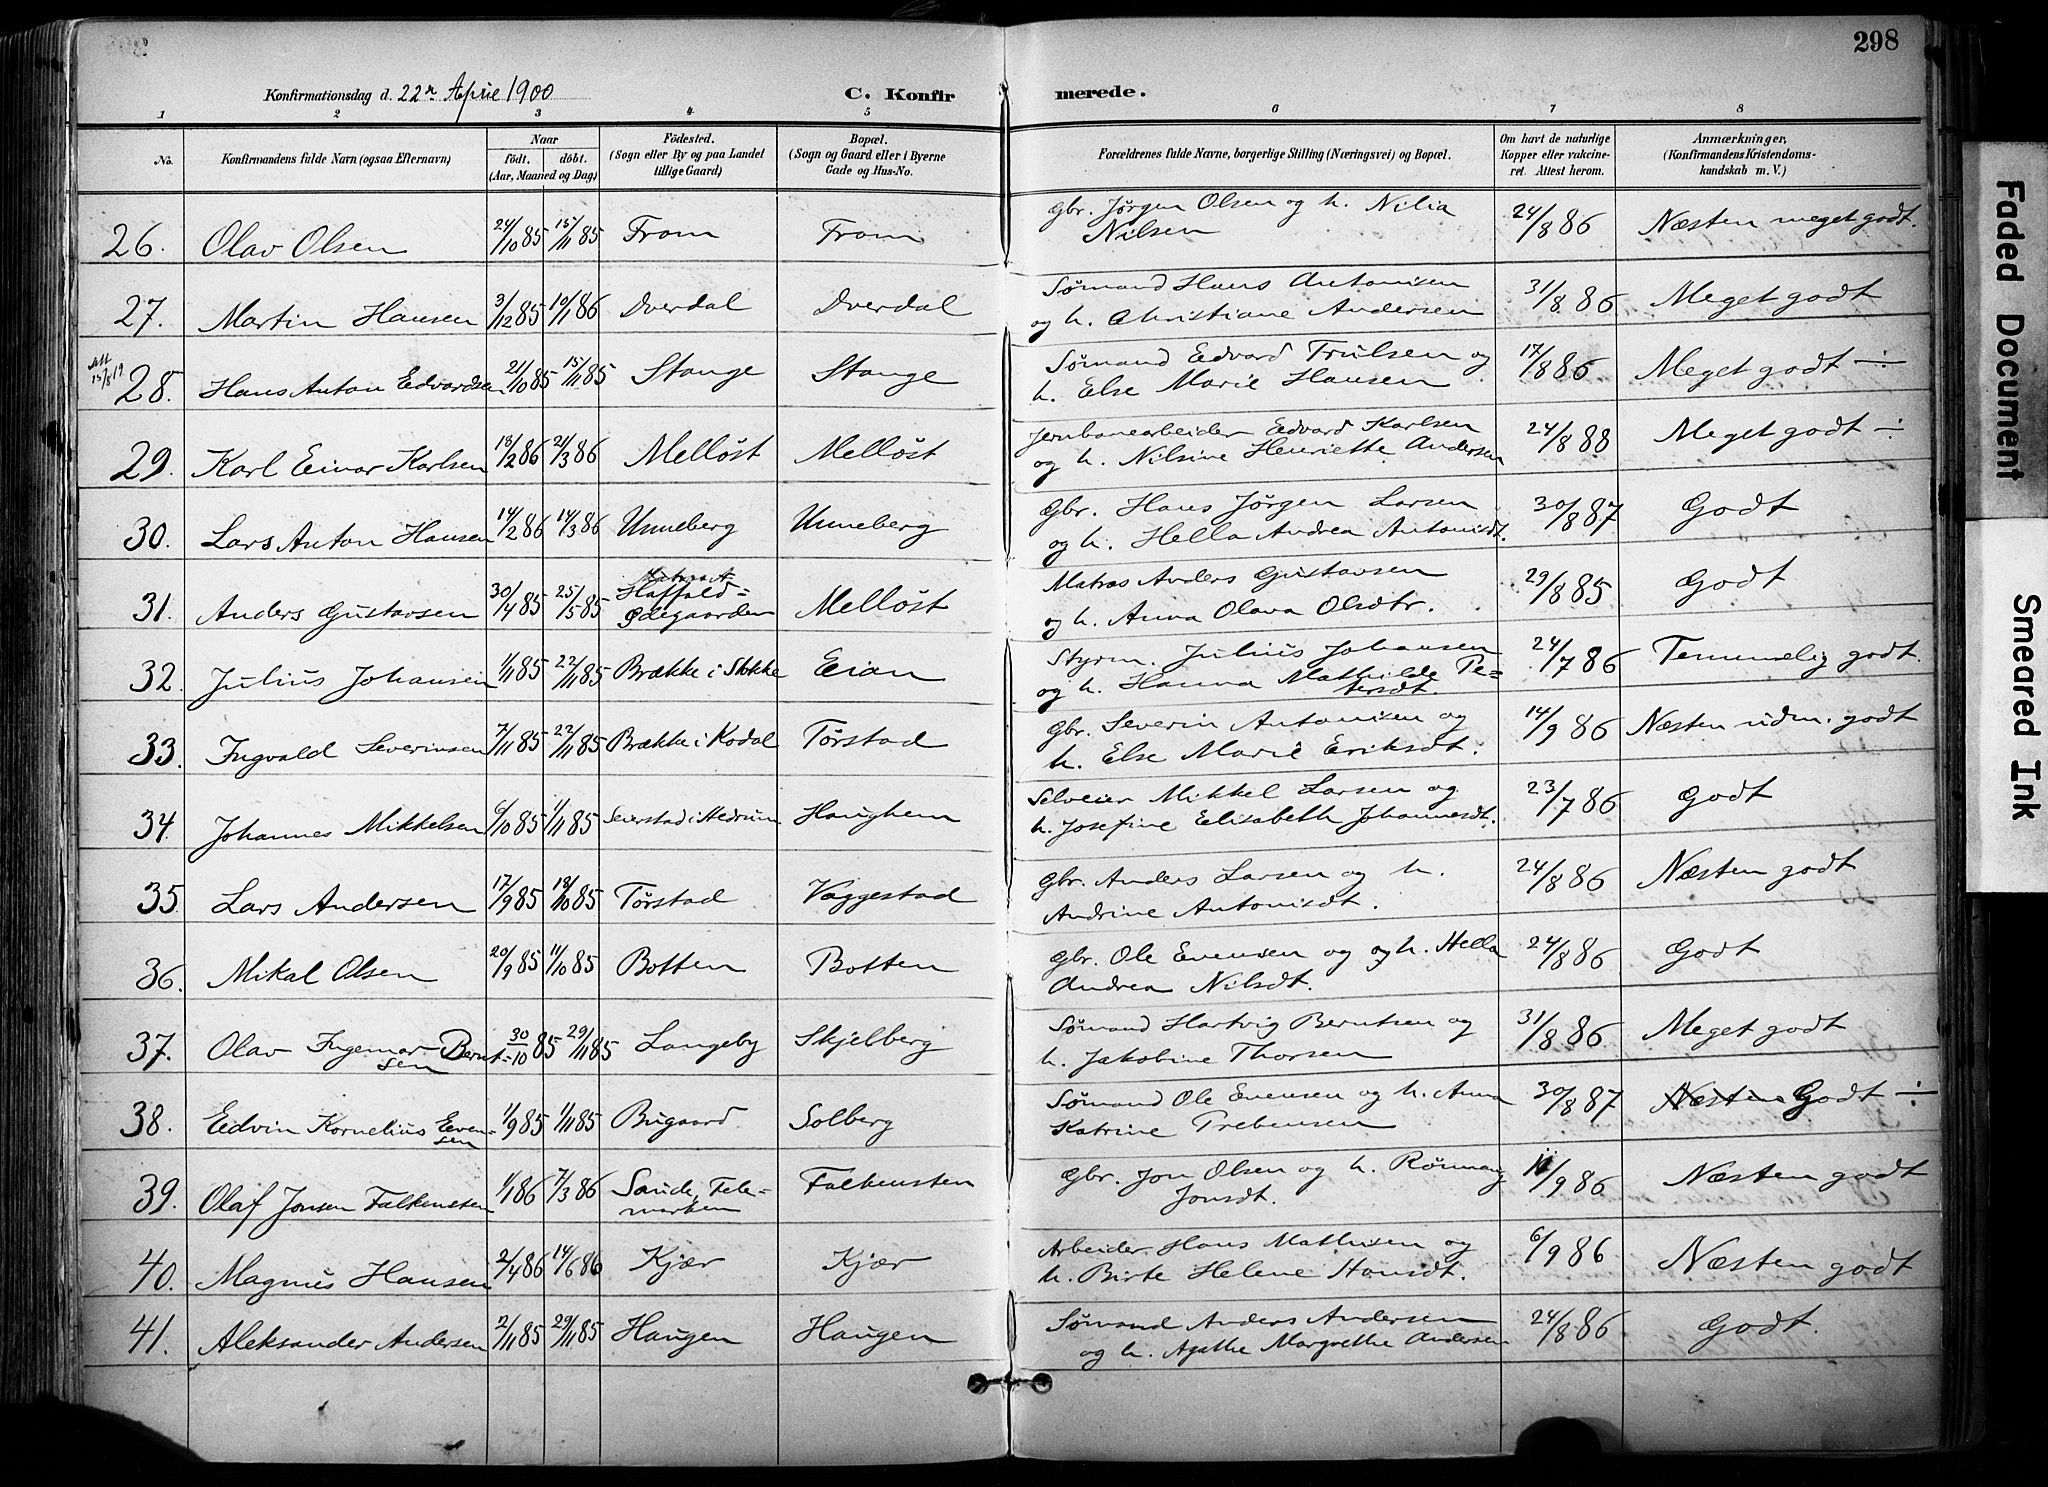 298
Konfirmationsdag d. 22de April 1900 C. Konfirmerede.
1 2 3 4 5 6 7 8
No. Konfirmandens fulde Navn (ogsaa Efternavn) Naar födt. döbt. (Aar, Maaned og Dag) Födested. (Sogn eller By og paa Landet tillige Gaard) Bopæl. (Sogn og Gaard eller i Byerne Gade og Hus-No. Forældrenes fulde Navne, borgerlige Stilling (Næringsvei) og Bopæl. Om havt de naturlige Kopper eller vakcineret. Attest herom. Anmærkninger, (Konfirmandens Kristendomskundskab m. V.)
26. Olav Olsen 24/10 85 15/11 85 Fram Fram Gbr. Jørgen Olsen og h. Nilia Nilsen 24/8 86 Næsten meget godt.
27. Martin Hansen 3/12 85 10/1 86 Dverdal Dverdal Sømand Hans Antonisen og h. Christiane Andersen 31/8 86 Meget godt
Att 15/8 19
28. Hans Anton Edvardsen 21/10 85 15/11 85 Stange Stange Sømand Edvard Trulsen og h. Else Marie Hansen 17/8 86 Meget godt ÷
29. Karl Einar Karlsen 18/2 86 21/3 86 Melløst Melløst Jernbanearbeider Edvard Karlsen og h. Nilsine Henriette Andersen 24/8 88 Meget godt ÷
30. Lars Anton Hansen 14/2 86 14/3 86 Unneberg Unneberg Gbr. Hans Jørgen Larsen og h. Hella Andrea Antonisdt. 30/8 87 Godt
31. Anders Gustavsen 30/4 85 25/5 85 Haffald=Ødegaarden Melløst Matros Anders Gustavsen og h. Anna Olava Olsdtr. 29/8 85 Godt
32. Julius Johansen 1/11 85 22/11 85 Brække i Stokke Eian Styrm. Julius Johansen og h. Hanna Mathilde Petersdt. 24/7 86 Temmelig godt.
33. Ingvald Severinsen 7/11 85 22/11 85 Brække i Kodal Tørstad Gbr. Severin Antonisen og h. Else Marie Eriksdt. 14/9 86 Næsten udm. godt
34. Johannes Mikkelsen 6/10 85 1/11 85 Seierstad i Hedrum Haughem Selveier Mikkel Larsen og h. Josefine Elisabeth Johannesdt. 23/7 86 Godt
35 Lars Andersen 17/9 85 18/10 85 Tørstad Vaggestad Gbr. Anders Larsen og h. Andrine Antonisdt. 24/8 86 Næsten godt
36. Mikal Olsen 20/9 85 11/10 85 Botten Botten Gbr. Ole Evensen og og h. Hella Andrea Nilsdt. 24/8 86 Godt
37. Olav Ingemar Berntsen 30/10 85 29/11 85 Langeby Skjelberg Sømand Hartvig Berntsen og h. Jakobine Thorsen 31/8 86 Meget godt
38. Edvin Kornelius Evensen 1/9 85 1/11 85 Bugaard Solberg Sømand Ole Evensen og h. Anna Katrine Prebensen 30/8 87 Næsten Godt ÷
39. Olaf Jonsen Falkensten 1/1 86 7/3 86 Sande, Telemarken Falkensten Gbr. Jon Olsen og h. Rønnaug Jonsdt. 11/9 86 Næsten godt
40. Magnus Hansen 2/4 86 14/6 86 Kjær Kjær Arbeider Hans Mathisen og h. Birte Helene Hansdt. 6/9 86 Næsten godt
41. Aleksander Andersen 2/11 85 29/11 85 Haugen Haugen Sømand Anders Andersen og h. Agathe Margrethe Andersen 24/8 86 Godt.
Faded Document
Smeared Ink